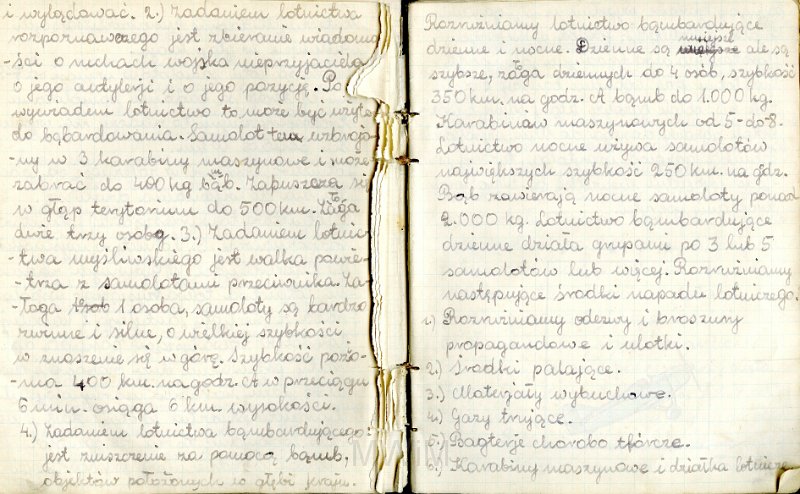 i wyglądować. 2.) Zadaniem lotnictwa
rozpoznawczego jest zbieranie wiadomo
-ści o ruchach wojska nieprzyjaciela
o jego artylerji i o jego pozycję. Po
wywiadem lotnictwo to może być użyte
do bąbardowania. Samolot ten uzbrojo-
-ny w 3 karabiny maszynowe i może
zabrać do 400 kg bąb. Zapuszcza się
w głąp terytorium do 500 km. Załoga
dwie trzy osoby. 3.) Zadaniem lotnic-
-twa myśliwskiego jest walka powie-
-trza z samolotami przeciwnika. Za-
-łoga 1 osoba, samoloty są bardzo
zwinne i silne, o wielkiej szybkości
w znoszenie się w górę. Szybkość pozio-
-ma 400 km. na godz. A w przeciągu
6 min. osiąga 6 km wysokości.
4.) Zadaniem lotnictwa bąmbardującego
jest zniszczenie za pomocą bąmb,
objektów położonych w głębi kraju.
Rozruźniamy lotnictwo bąmbardujące
dzienne i nocne. Dzienne są mniejsze ale są
szybsze, załoga dziennych do 4 osób, szybkość
350 km. na godz. A bąmb do 1.000 kg.
Karabinów maszynowych od 5-do-8.
Lotnictwo nocne używa samolotów
największych szybkość 250 km. na gdz.
Bąb zawierają nocne samoloty ponad
2.000 kg. Lotnictwo bąmbardujące
dzienne działa grupami po 3 lub 5
samolotów lub więcej. Rozruźniamy
następujące środki napadu lotniczego.
1.) Rozruźniamy odezwy i broszury
propagandowe i ulotki.
2.) Środki palające.
3.) Materjały wybuchowe.
4.) Gazy trujące.
5.) Bagterje chorobo twórcze.
6.) Karabiny maszynowe i działka lotnicze